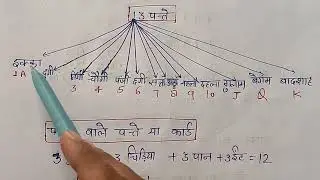 13 पत्ते
इक्का दुग्गी तिग्गी चौगी पंजी छग्गी सत्ता अट्ठा नहला दहला गुलाम बेगम बादशाह
A 3 4 5 6 7 8 9 10 J Q K
वाले पत्ते या कार्ड
3 चिड़िया + 3 पान + 3 ईंट = 12